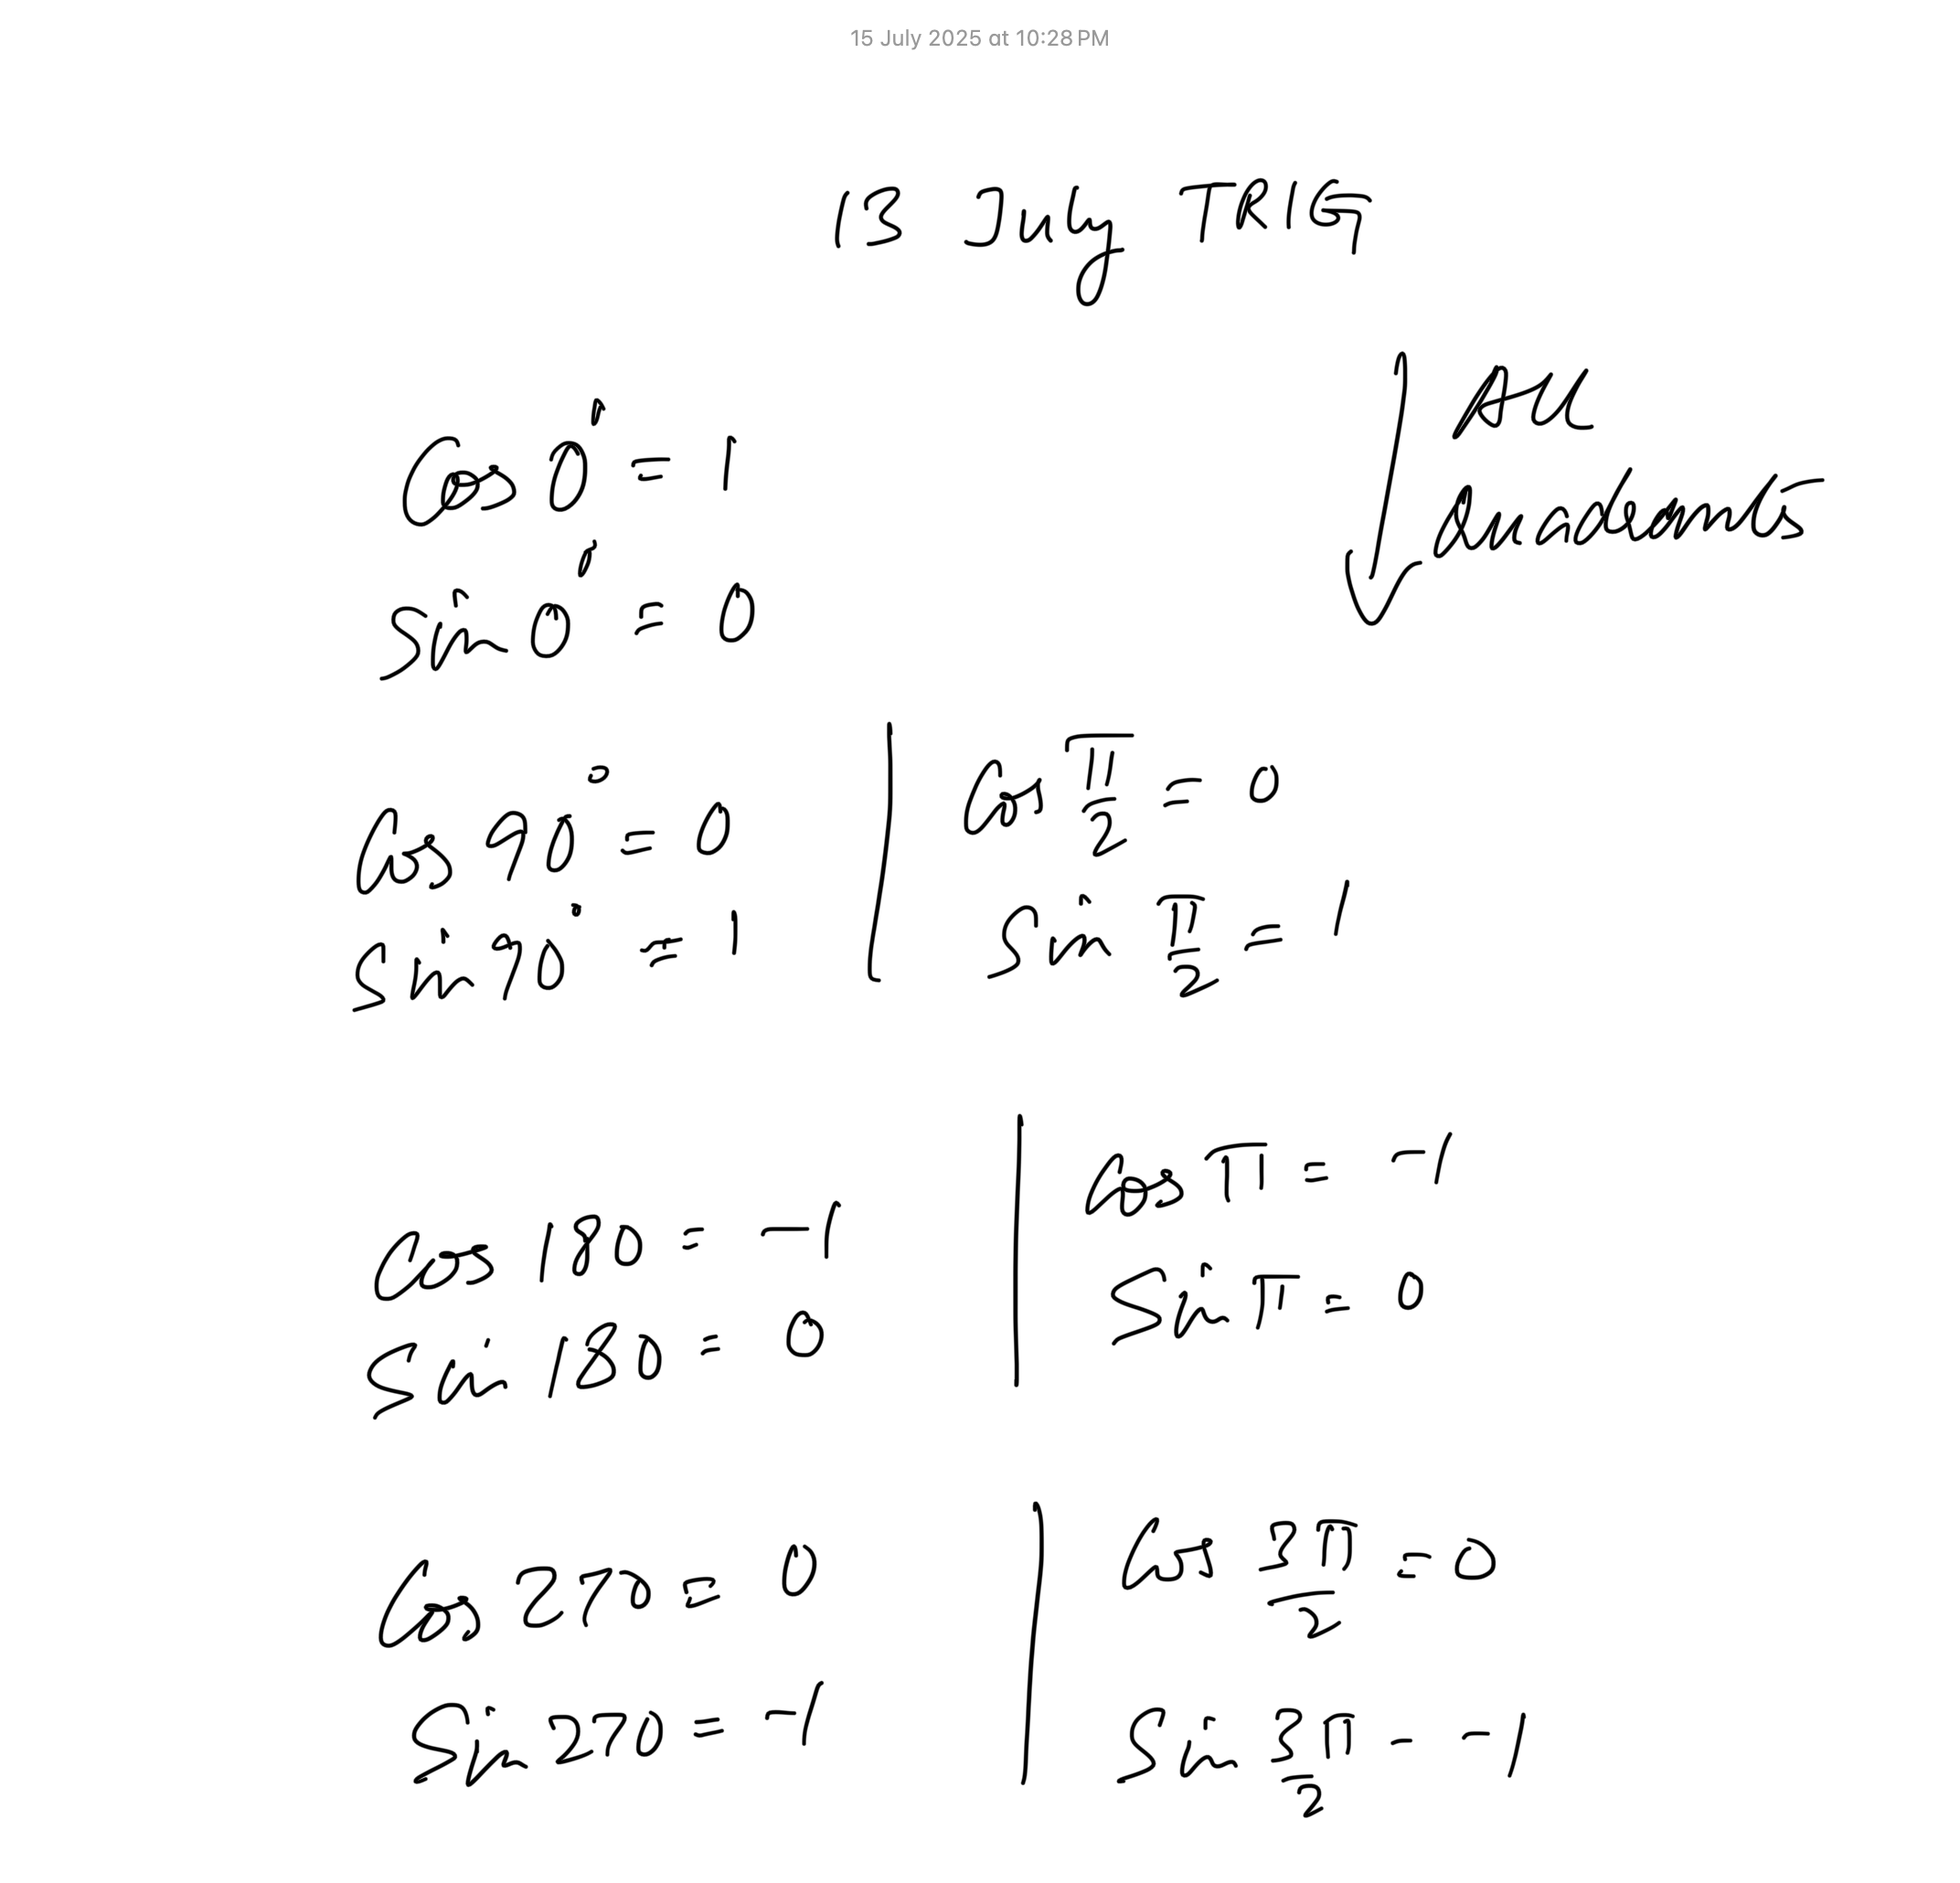 15 July 2025 at 10:28 PM
13 July TRIG
All
Quadrants
Cos 0° = 1
Sin 0° = 0
Cos 90° = 0
Sin 90° = 1
Cos π/2 = 0
Sin π/2 = 1
Cos 180 = -1
Sin 180 = 0
Cos π = -1
Sin π = 0
Cos 270 = 0
Sin 270 = -1
Cos 3π/2 = 0
Sin 3π/2 - -1